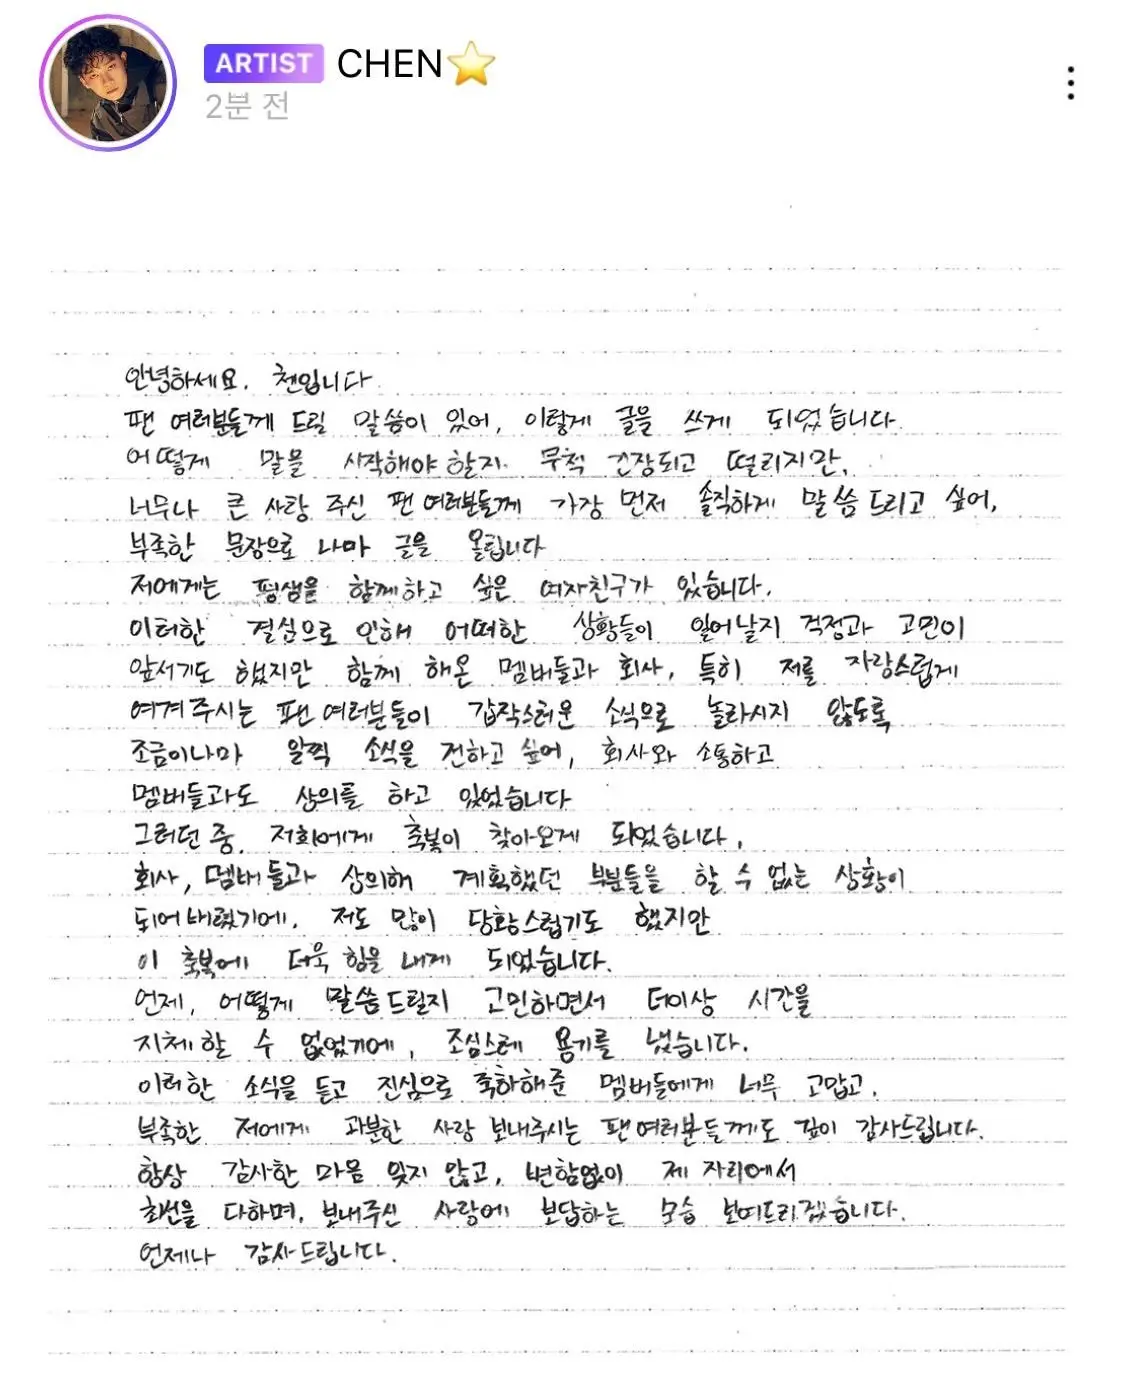 ARTIST CHEN⭐
2분 전
안녕하세요. 첸입니다.
팬 여러분들께 드릴 말씀이 있어, 이렇게 글을 쓰게 되었습니다.
어떻게 말을 시작해야 할지. 무척 긴장되고 떨리지만,
너무나 큰 사랑 주신 팬 여러분들께 가장 먼저 솔직하게 말씀드리고 싶어,
부족한 문장으로 나마 글을 올립니다
저에게는 평생을 함께하고 싶은 여자친구가 있습니다.
이러한 결심으로 인해 어떠한 상황들이 일어날지 걱정과 고민이
앞서기도 했지만 함께 해온 멤버들과 회사, 특히 저를 자랑스럽게
여겨주시는 팬 여러분들이 갑작스러운 소식으로 놀라시지 않도록
조금이나마 일찍 소식을 전하고 싶어, 회사와 소통하고
멤버들과도 상의를 하고 있었습니다
그러던 중. 저희에게 축복이 찾아오게 되었습니다.
회사, 멤버들과 상의해 계획했던 부분들을 할 수 없는 상황이
되어버렸기에. 저도 많이 당황스럽기도 했지만
이 축복에 더욱 힘을 내게 되었습니다.
언제, 어떻게 말씀드릴지 고민하면서 더이상 시간을
지체할 수 없었기에, 조심스레 용기를 냈습니다.
이러한 소식을 듣고 진심으로 축하해준 멤버들에게 너무 고맙고,
부족한 저에게 과분한 사랑 보내주시는 팬여러분들께도 깊이 감사드립니다.
항상 감사한 마음 잊지 않고, 변함없이 제 자리에서
최선을 다하며, 보내주신 사랑에 보답하는 모습 보여드리겠습니다.
언제나 감사드립니다.